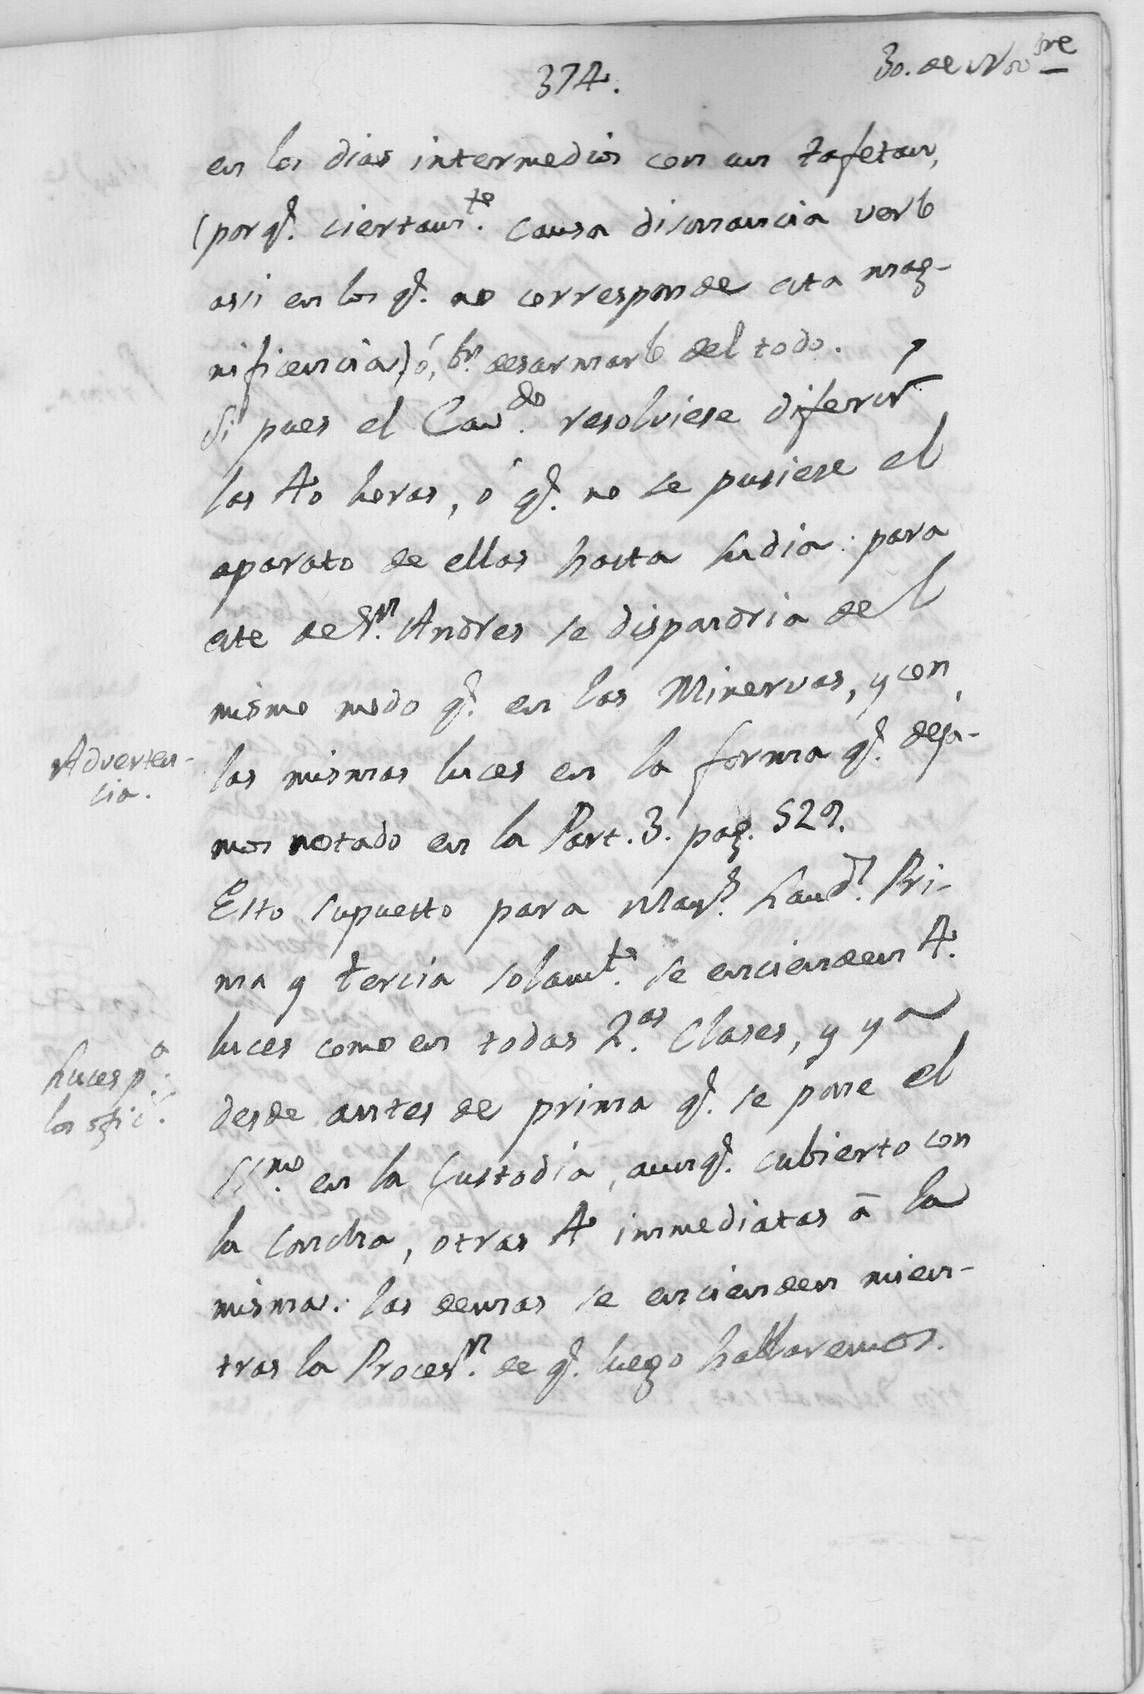 374.
30. de Nov.bre
en los dias intermedios con un tafetan,
(porq.e ciertam.te causa disonancia verlo
assi en los q.e no corresponde esta mag-
nificencia) ó, b.n desarmarlo del todo.
Si pues el Cav.do resolviese diferir
las 40 horas, ó q.e no se pusiese el
aparato de ellas hasta su dia: para
este de S.n Andres se dispondria del
mismo modo q.e en las Minervas, y con
Adverten-
cia.
las mismas luces en la forma q.e deja-
mos notado en la Part. 3. pag. 529.
Esto supuesto para May.s Laud.s Pri-
ma y tercia solam.te se encienden 4.
luces como en todas 2.as Clases, y ya
Luces p.a
los ofic.s
desde antes de prima q.e se pone el
SS.mo en la Custodia, aunq.e cubierto con
la Concha, otras 4 immediatas à la
misma: las demas se encienden mien-
tras la Proces.n de q.e luego hablaremos.